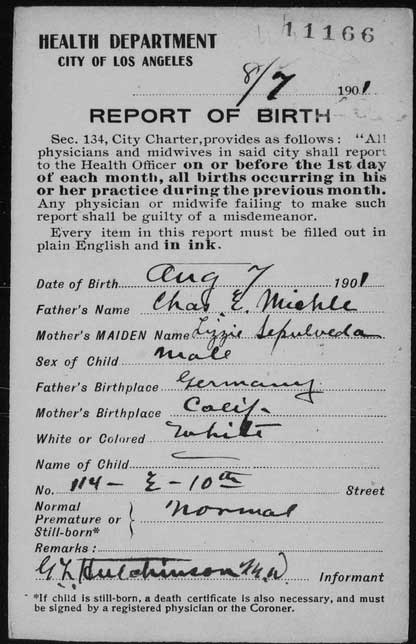 11166
HEALTH DEPARTMENT
CITY OF LOS ANGELES
8/7 1901
REPORT OF BIRTH
Sec. 134, City Charter, provides as follows: "All
physicians and midwives in said city shall report
to the Health Officer on or before the 1st day
of each month, all births occurring in his
or her practice during the previous month.
Any physician or midwife failing to make such
report shall be guilty of a misdemeanor.
Every item in this report must be filled out in
plain English and in ink.
Date of Birth Aug 7 1901
Father's Name Chas. E. Miehle
Mother's MAIDEN Name Lizzie Sepulveda
Sex of Child male
Father's Birthplace Germany
Mother's Birthplace Calif.
White or Colored White
Name of Child
No. 114 - E - 10th Street
Normal
Premature or } Normal
Still-born*
Remarks:
G L Hutchinson M.D. Informant
*If child is still-born, a death certificate is also necessary, and must
be signed by a registered physician or the Coroner.